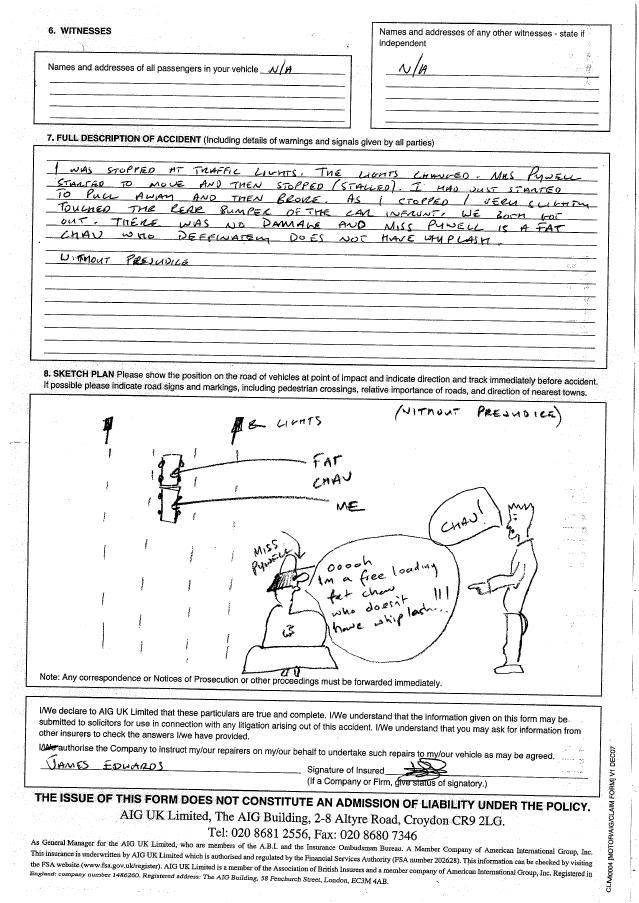 6. WITNESSES
Names and addresses of all passengers in your vehicle N/A
Names and addresses of any other witnesses - state if
independent
N/A
7. FULL DESCRIPTION OF ACCIDENT (Including details of warnings and signals given by all parties)
I WAS STOPPED AT TRAFFIC LIGHTS. THE LIGHTS CHANGED. MRS PYWELL
STARTED TO MOVE AND THEN STOPPED (STALLED). I HAD JUST STARTED
TO PULL AWAY AND THEN BROKE. AS I STOPPED I VERY SLIGHTLY
TOUCHED THE REAR BUMPER OF THE CAR INFRONT. WE BOTH GOT
OUT. THERE WAS NO DAMAGE AND MISS PYWELL IS A FAT
CHAV WHO DEFFINATELY DOES NOT HAVE WHIPLASH.
WITHOUT PREJUDICE
8. SKETCH PLAN Please show the position on the road of vehicles at point of impact and indicate direction and track immediately before accident.
If possible please indicate road signs and markings, including pedestrian crossings, relative importance of roads, and direction of nearest towns.
(WITHOUT PREJUDICE)
LIGHTS
FAT
CHAV
ME
CHAV!
MISS
PYWELL
ooooh
Im a free loading
fat chav
who doesn't
have whiplash...!!!
Note: Any correspondence or Notices of Prosecution or other proceedings must be forwarded immediately.
I/We declare to AIG UK Limited that these particulars are true and complete. I/We understand that the information given on this form may be
submitted to solicitors for use in connection with any litigation arising out of this accident. I/We understand that you may ask for information from
other insurers to check the answers I/we have provided.
I/We authorise the Company to instruct my/our repairers on my/our behalf to undertake such repairs to my/our vehicle as may be agreed.
JAMES EDWARDS
Signature of Insured
(If a Company or Firm, give status of signatory.)
THE ISSUE OF THIS FORM DOES NOT CONSTITUTE AN ADMISSION OF LIABILITY UNDER THE POLICY.
AIG UK Limited, The AIG Building, 2-8 Altyre Road, Croydon CR9 2LG.
Tel: 020 8681 2556, Fax: 020 8680 7346
As General Manager for the AIG UK Limited, who are members of the A.B.I. and the Insurance Ombudsman Bureau. A Member Company of American International Group, Inc.
This insurance is underwritten by AIG UK Limited which is authorised and regulated by the Financial Services Authority (FSA number 202628). This information can be checked by visiting
the FSA website (www.fsa.gov.uk/register). AIG UK Limited is a member of the Association of British Insurers and a member company of American International Group, Inc. Registered in
England: company number 1486260. Registered address: The AIG Building, 58 Fenchurch Street, London, EC3M 4AB.
CLM0004 [MOTOR/AIG/CLAIM FORM] V1 DEC07